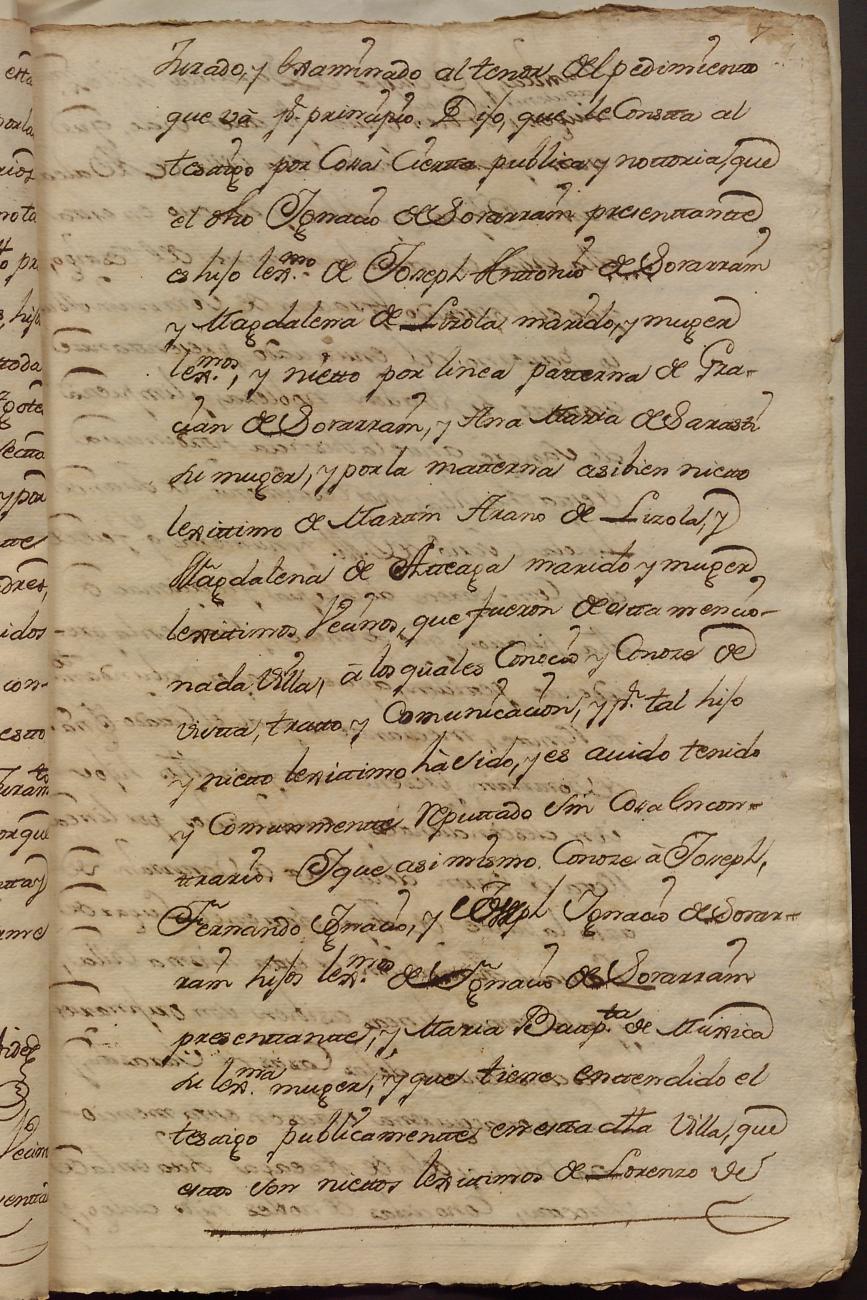 7
Jurado, y Examinado al tenor del pedimiento
que và pr. principio. Dijo, que le Consta al
testigo por Cosa Cierta publica y nottoria, que
el dho Ignacio de Sorarrain presenttante
es hijo lexmo. de Joseph Antonio de Sorarrain
y Magdalena de Lizola marido, y muger
lexmos., y nietto por linea patterna de Gra-
cian de Sorarrain, y Ana Maria de Sarasti
su muger, y por la matterna asibien nietto
lexittimo de Martin Arano de Lizola, y
Magdalena de Atteaga marido y muger
lexittimos Vecinos, que fueron de esta mencio-
nada Villa, à los quales Conocio y Conoze de
vista, tratto, y Comunicacion, y pr. tal hijo
y nietto lexittimo hà sido, y es auido tenido
y Comunmente Reputtado sin Cosa Encon-
trario. Y que asi mismo. Conoze à Joseph,
Fernando Ignacio, y Joseph Ignacio de Sorar-
rain hijos lexmos. de Ignacio de Sorarrain
presenttante, y Maria Baupta. de Munica
su lexma. muger, y que tiene entendido el
testigo publicamente en esta dha Villa, que
estos son niettos lexittimos de Lorenzo de